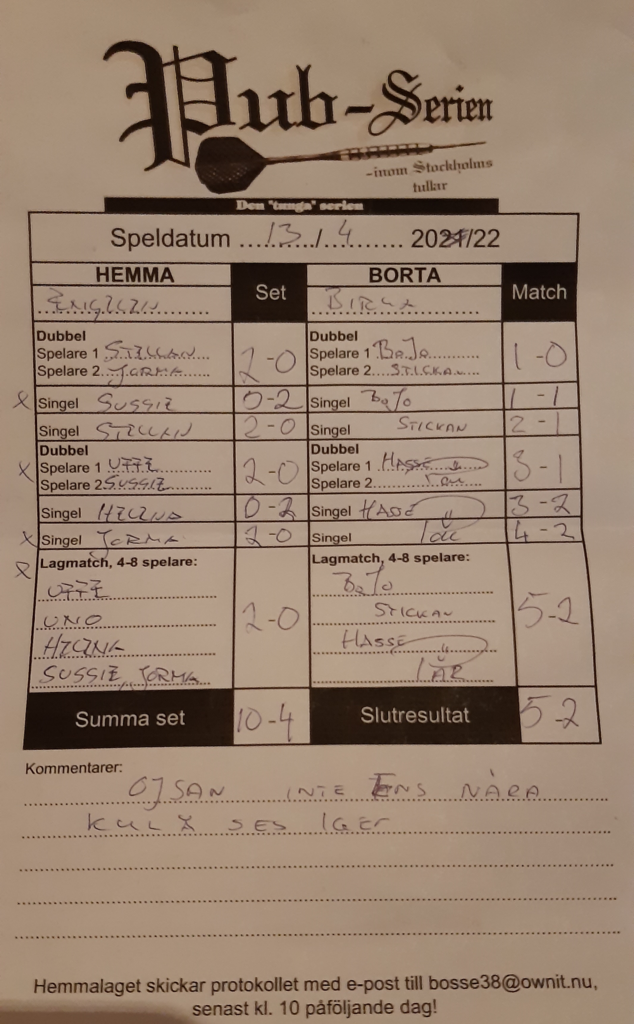 Pub-Serien
-inom Stockholms
tullar
Den "tunga" serien
Speldatum 13/4 2021/22
HEMMA Set BORTA Match
ENGELEN BIRKA
Dubbel Dubbel
Spelare 1 STELLAN 2-0 Spelare 1 BoJo 1-0
Spelare 2 JORMA Spelare 2 STICKAN
X Singel SUSSIE 0-2 Singel BoJo 1-1
Singel STELLAN 2-0 Singel STICKAN 2-1
Dubbel Dubbel
X Spelare 1 UFFE 2-0 Spelare 1 HASSE 3-1
Spelare 2 SUSSIE Spelare 2
Singel HELENA 0-2 Singel HASSE 3-2
X Singel JORMA 2-0 Singel 4-2
X Lagmatch, 4-8 spelare: Lagmatch, 4-8 spelare:
UFFE BoJo
UNO 2-0 STICKAN 5-2
HELENA HASSE
SUSSIE, JORMA
Summa set 10-4 Slutresultat 5-2
Kommentarer:
OJSAN INTE ENS NÄRA
KUL SES IGEN
Hemmalaget skickar protokollet med e-post till bosse38@ownit.nu,
senast kl. 10 påföljande dag!